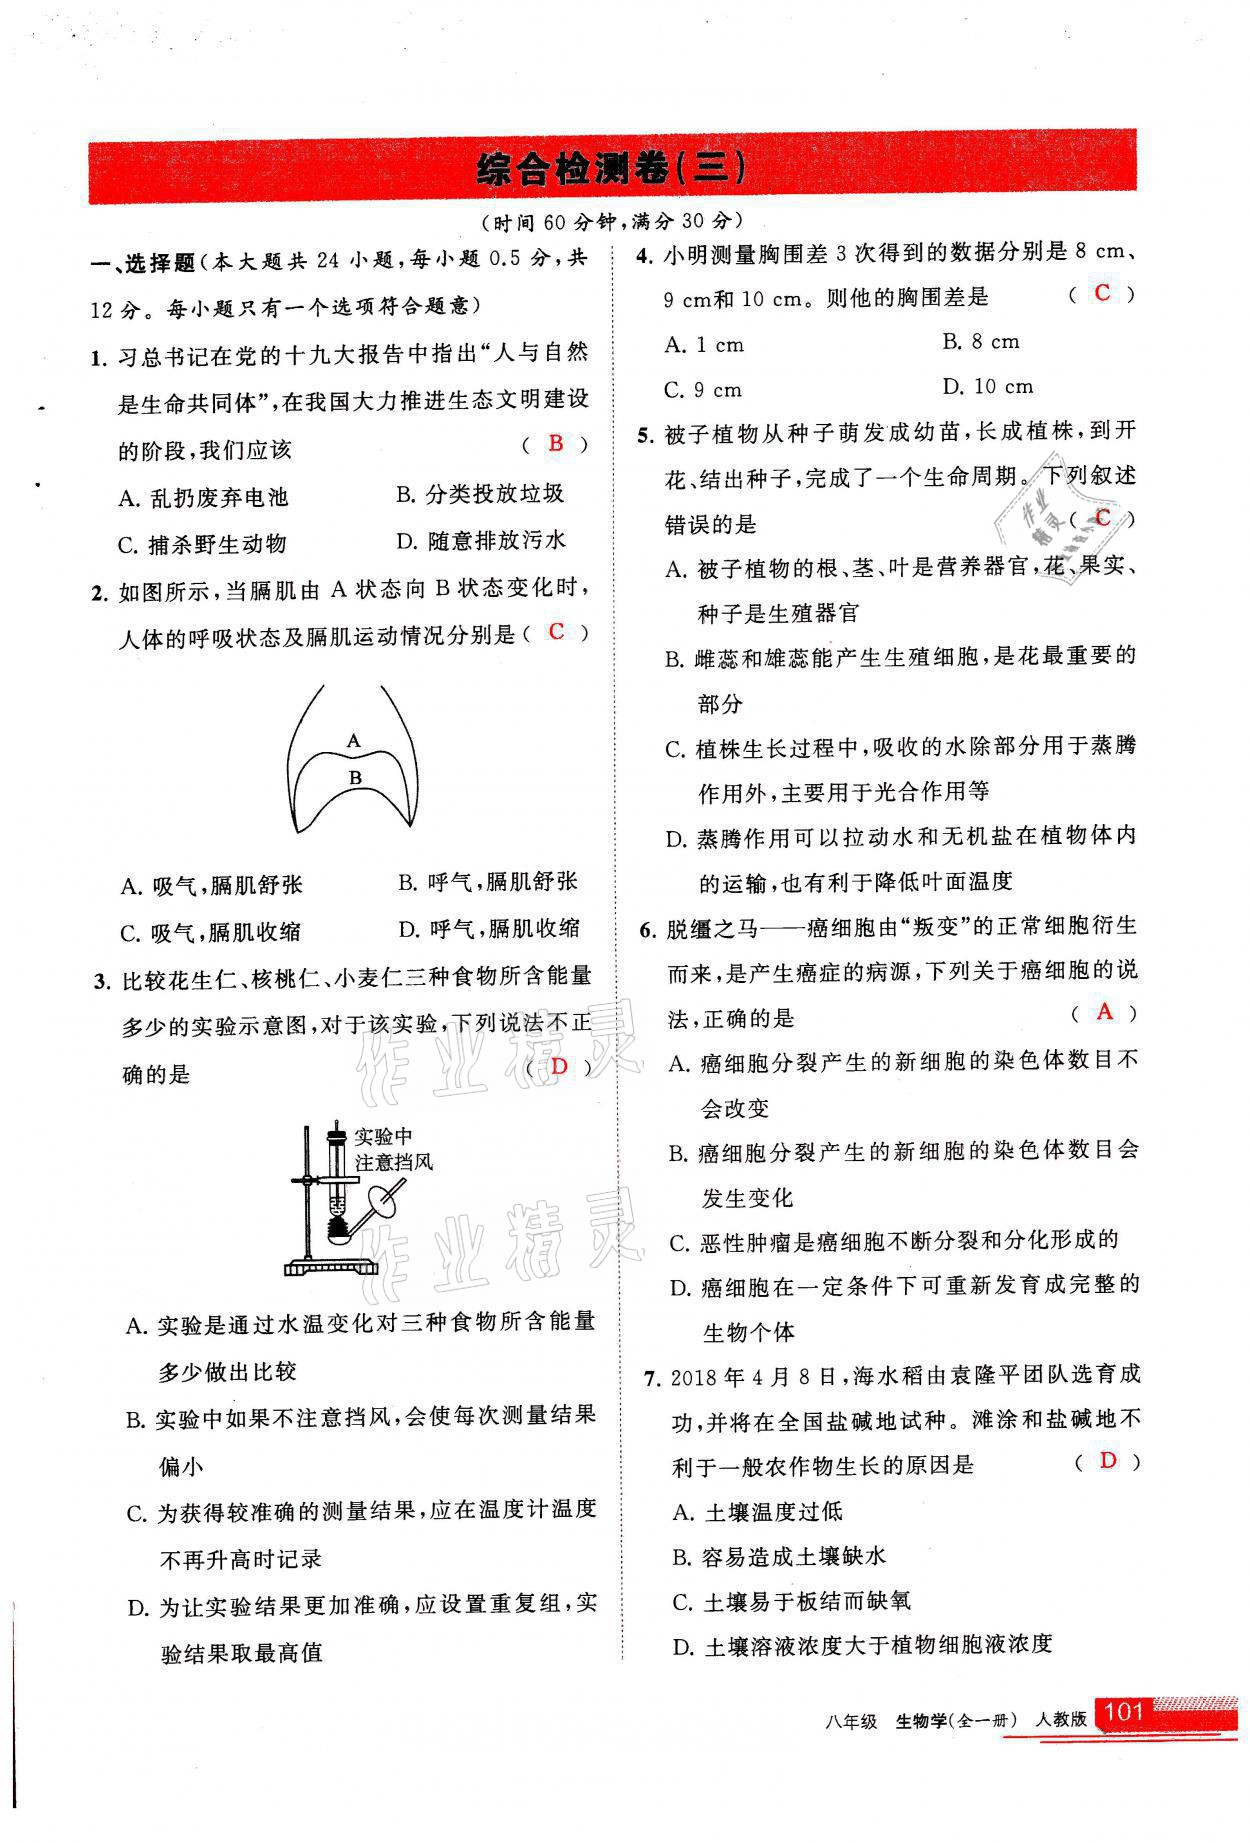 综合检测卷(三)
(时间60分钟,满分30分)
一、选择题(本大题共24小题,每小题0.5分,共
12分。每小题只有一个选项符合题意)
1. 习总书记在党的十九大报告中指出“人与自然
是生命共同体”,在我国大力推进生态文明建设
的阶段,我们应该 ( B )
A. 乱扔废弃电池 B. 分类投放垃圾
C. 捕杀野生动物 D. 随意排放污水
2. 如图所示,当膈肌由 A 状态向 B 状态变化时,
人体的呼吸状态及膈肌运动情况分别是( C )
A
B
A. 吸气,膈肌舒张 B. 呼气,膈肌舒张
C. 吸气,膈肌收缩 D. 呼气,膈肌收缩
3. 比较花生仁、核桃仁、小麦仁三种食物所含能量
多少的实验示意图,对于该实验,下列说法不正
确的是 ( D )
实验中
注意挡风
A. 实验是通过水温变化对三种食物所含能量
多少做出比较
B. 实验中如果不注意挡风,会使每次测量结果
偏小
C. 为获得较准确的测量结果,应在温度计温度
不再升高时记录
D. 为让实验结果更加准确,应设置重复组,实
验结果取最高值
4. 小明测量胸围差 3 次得到的数据分别是 8 cm、
9 cm和 10 cm。则他的胸围差是 ( C )
A. 1 cm B. 8 cm
C. 9 cm D. 10 cm
5. 被子植物从种子萌发成幼苗,长成植株,到开
花、结出种子,完成了一个生命周期。下列叙述
错误的是 ( C )
A. 被子植物的根、茎、叶是营养器官,花、果实、
种子是生殖器官
B. 雌蕊和雄蕊能产生生殖细胞,是花最重要的
部分
C. 植株生长过程中,吸收的水除部分用于蒸腾
作用外,主要用于光合作用等
D. 蒸腾作用可以拉动水和无机盐在植物体内
的运输,也有利于降低叶面温度
6. 脱缰之马——癌细胞由“叛变”的正常细胞衍生
而来,是产生癌症的病源,下列关于癌细胞的说
法,正确的是 ( A )
A. 癌细胞分裂产生的新细胞的染色体数目不
会改变
B. 癌细胞分裂产生的新细胞的染色体数目会
发生变化
C. 恶性肿瘤是癌细胞不断分裂和分化形成的
D. 癌细胞在一定条件下可重新发育成完整的
生物个体
7. 2018 年 4 月 8 日,海水稻由袁隆平团队选育成
功,并将在全国盐碱地试种。滩涂和盐碱地不
利于一般农作物生长的原因是 ( D )
A. 土壤温度过低
B. 容易造成土壤缺水
C. 土壤易于板结而缺氧
D. 土壤溶液浓度大于植物细胞液浓度
作业精灵
作业精灵
作业
精灵
八年级 生物学(全一册) 人教版 101